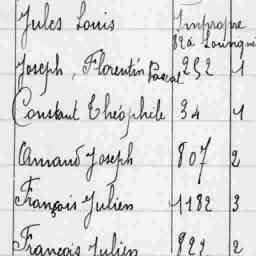 Jules Louis Impropre
82a Louingué
Joseph, Florentin Pascal 282 1
Constant Théophile 34 1
Amand Joseph 807 2
François Julien 1182 3
François Julien 822 2